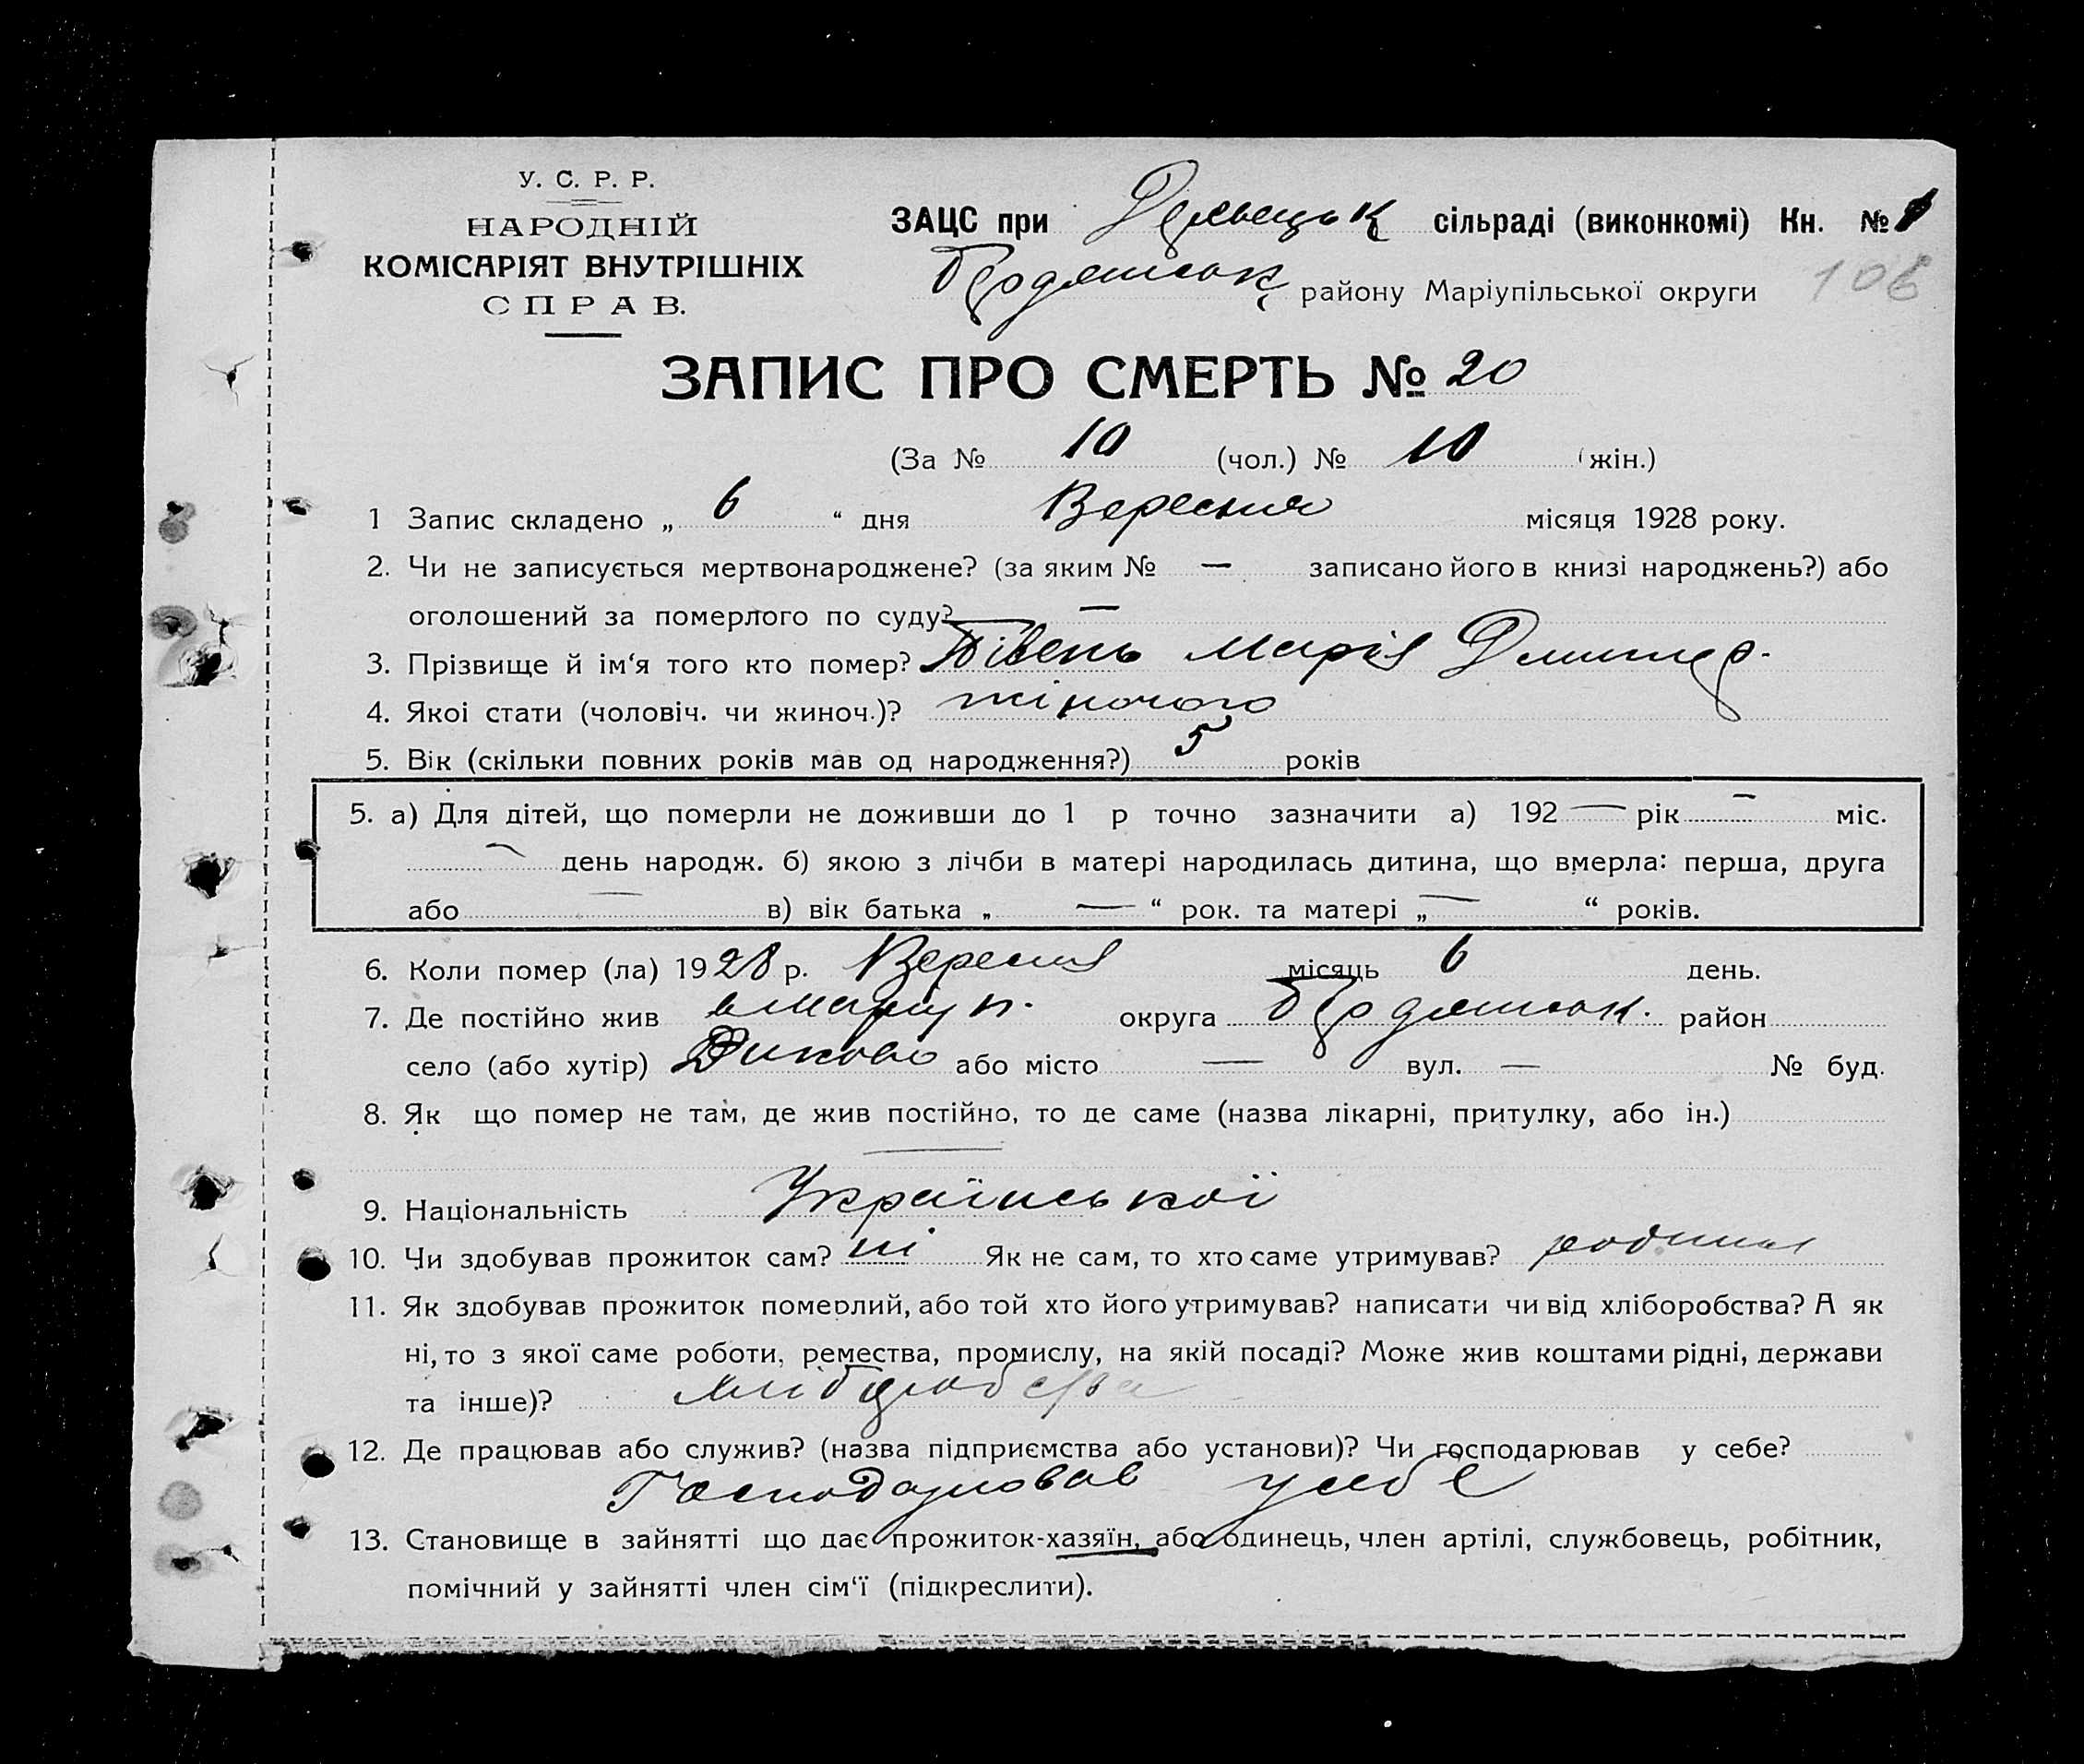 У. С. Р. Р.
НАРОДНІЙ
КОМІСАРІЯТ ВНУТРІШНІХ
СПРАВ.
ЗАЦС при сільраді (виконкомі) Кн. № 1
Бердянськ району Маріупільської округи
106
ЗАПИС ПРО СМЕРТЬ № 20
(За № 10 (чол.) № 10 (жін.)
1 Запис складено „ 6 “ дня Вересня місяця 1928 року.
2. Чи не записується мертвонароджене? (за яким № — записано його в книзі народжень?) або
оголошений за померлого по суду? —
3. Прізвище й ім‘я того кто помер? Півень Марія Дмитр.
4. Якої стати (чоловіч. чи жиноч.)? жіночого
5. Вік (скільки повних років мав од народження?) 5 років
5. а) Для дітей, що померли не доживши до 1 р точно зазначити а) 192 — рік — міс.
— день народж. б) якою з лічби в матері народилась дитина, що вмерла: перша, друга
або — в) вік батька „ — “ рок. та матері „ — “ років.
6. Коли помер (ла) 1928 р. Вересня місяць 6 день.
7. Де постійно жив Маріуп. округа Бердянськ. район
село (або хутір) або місто — вул. — № буд.
8. Як що помер не там, де жив постійно, то де саме (назва лікарні, притулку, або ін.)
—
9. Національність Української
10. Чи здобував прожиток сам? ні Як не сам, то хто саме утримував? родина
11. Як здобував прожиток померлий, або той хто його утримував? написати чи від хліборобства? А як
ні, то з якої саме роботи, ремества, промислу, на якій посаді? Може жив коштами рідні, держави
та інше)? хліборобства
12. Де працював або служив? (назва підприємства або установи)? Чи господарював у себе?
Господарював у себе
13. Становище в зайнятті що дає прожиток-хазяїн, або одинець, член артілі, службовець, робітник,
помічний у зайнятті член сім‘ї (підкреслити).